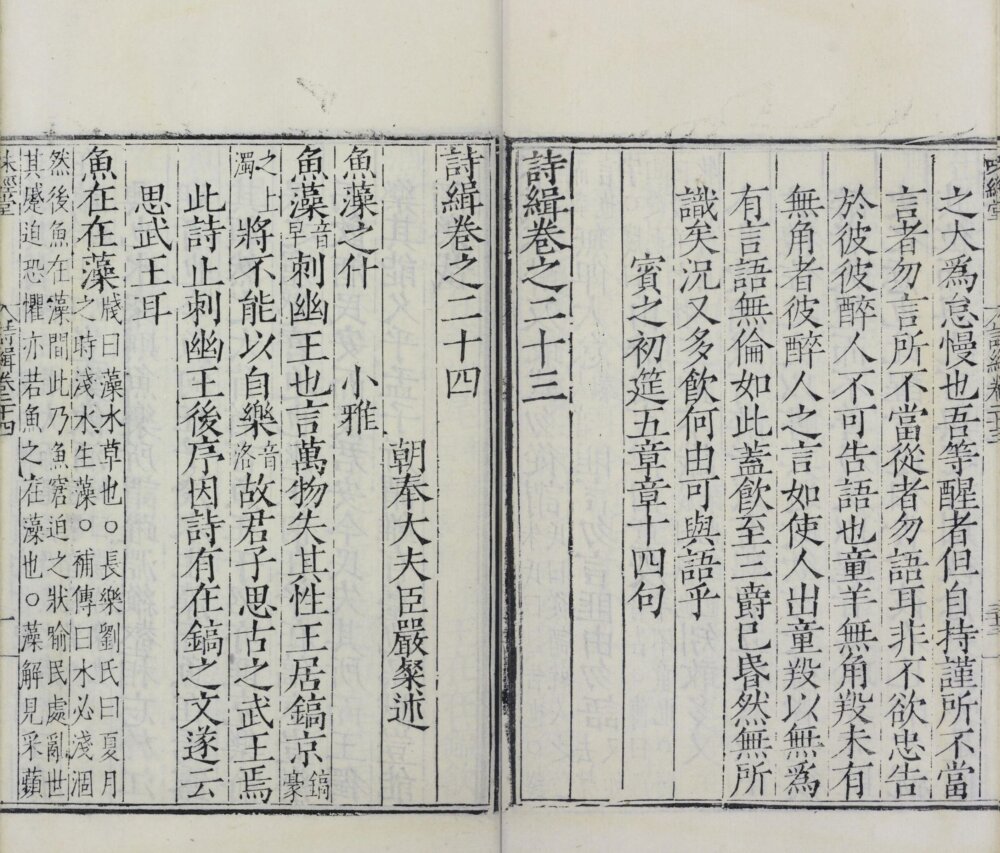 之大爲怠慢也吾等醒者但自持謹所不當
言者勿言所不當從者勿語耳非不欲忠告
於彼彼醉人不可告語也童羊無角羖未有
無角者彼醉人之言如使人出童羖以無爲
有言語無倫如此蓋飲至三爵已昬然無所
識矣況又多飲何由可與語乎
賓之初筵五章章十四句
詩緝卷之二十三
詩緝卷之二十四
朝奉大夫臣嚴粲述
魚藻之什 小雅
魚藻音早刺幽王也言萬物失其性王居鎬京鎬豪
之上濁將不能以自樂音洛故君子思古之武王焉
此詩止刺幽王後序因詩有在鎬之文遂云
思武王耳
魚在在藻牋曰藻水草也○長樂劉氏曰夏月
之時淺水生藻○補傳曰水必淺涸
然後魚在藻間此乃魚窘迫之狀喻民處亂世
其蹙迫恐懼亦若魚之在藻也○藻解見采蘋
味經堂 詩緝卷二十四 一